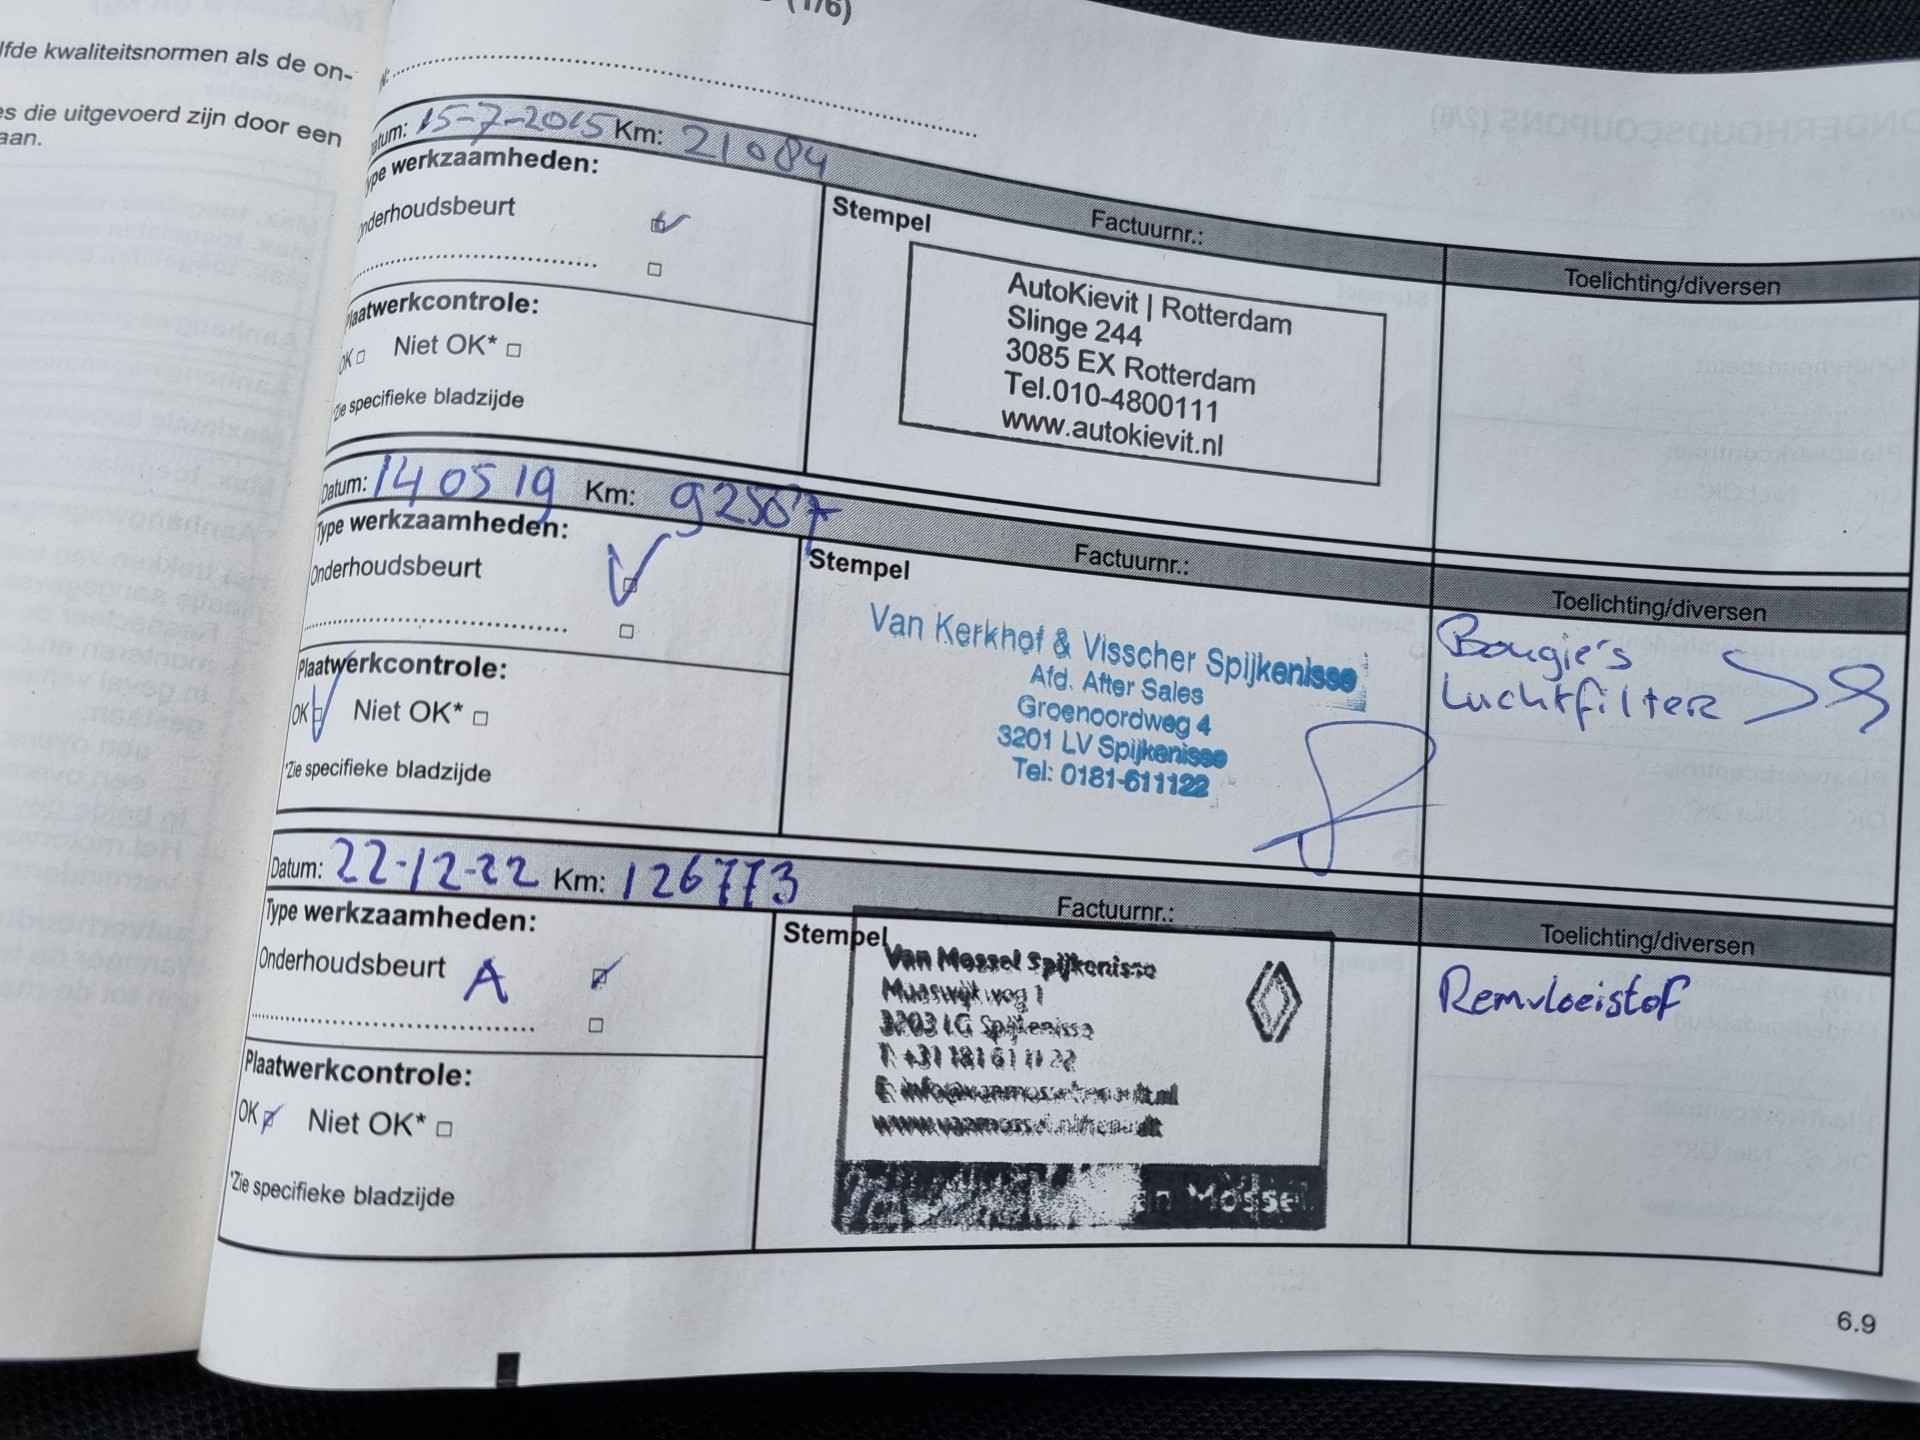 (1/6)
lfde kwaliteitsnormen als de on-
es die uitgevoerd zijn door een
aan.
Datum: 15-7-2015 Km: 21084
Type werkzaamheden:
Onderhoudsbeurt
Plaatwerkcontrole:
OK Niet OK*
*Zie specifieke bladzijde
Stempel
Factuurnr.:
AutoKievit | Rotterdam
Slinge 244
3085 EX Rotterdam
Tel.010-4800111
www.autokievit.nl
Toelichting/diversen
Datum: 14 05 19 Km: 92587
Type werkzaamheden:
Onderhoudsbeurt
Plaatwerkcontrole:
OK Niet OK*
*Zie specifieke bladzijde
Stempel
Factuurnr.:
Van Kerkhof & Visscher Spijkenisse
Afd. After Sales
Groenoordweg 4
3201 LV Spijkenisse
Tel: 0181-611122
Toelichting/diversen
Bougie's
Luchtfilter
Datum: 22-12-22 Km: 126773
Type werkzaamheden:
Onderhoudsbeurt A
Plaatwerkcontrole:
OK Niet OK*
*Zie specifieke bladzijde
Stempel
Factuurnr.:
Van Mossel Spijkenisse
Maaswijkweg 1
3203 LG Spijkenisse
T: +31 181 61 11 22
an Mossel
Toelichting/diversen
Remvloeistof
6.9